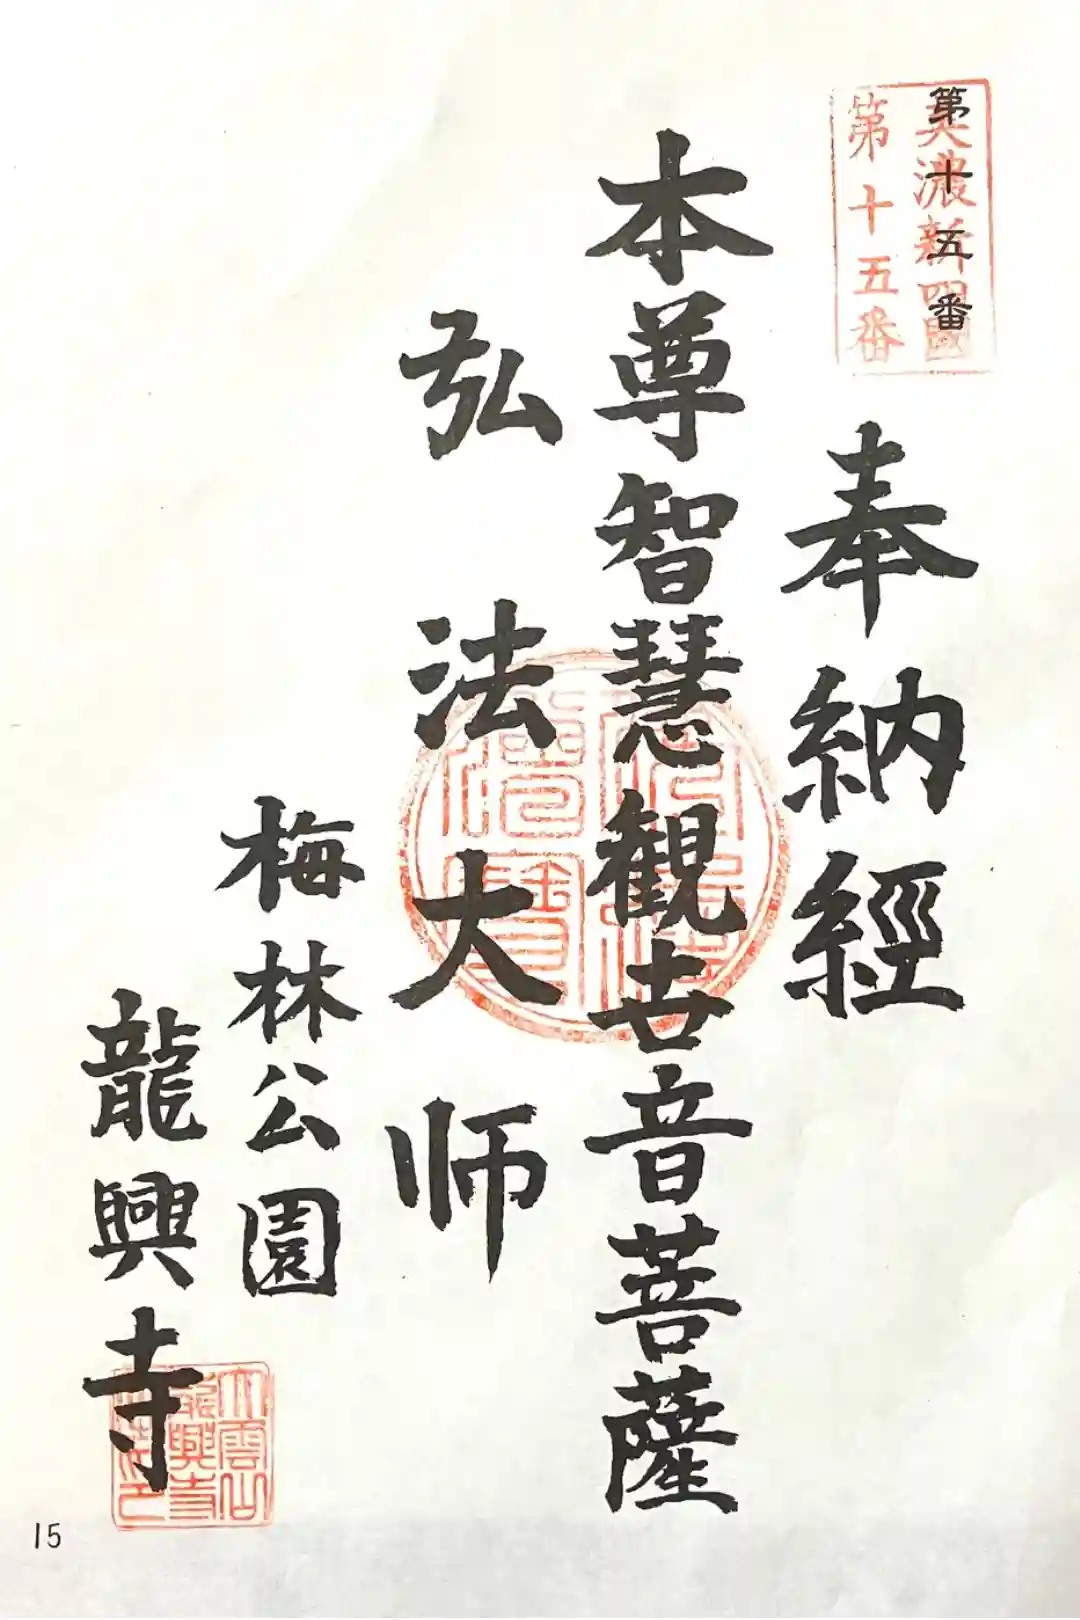 第十五番
美濃新四國
第十五番
奉納經
本尊智慧観世音菩薩
弘法大师
梅林公園
龍興寺
大雲山
龍興寺
15